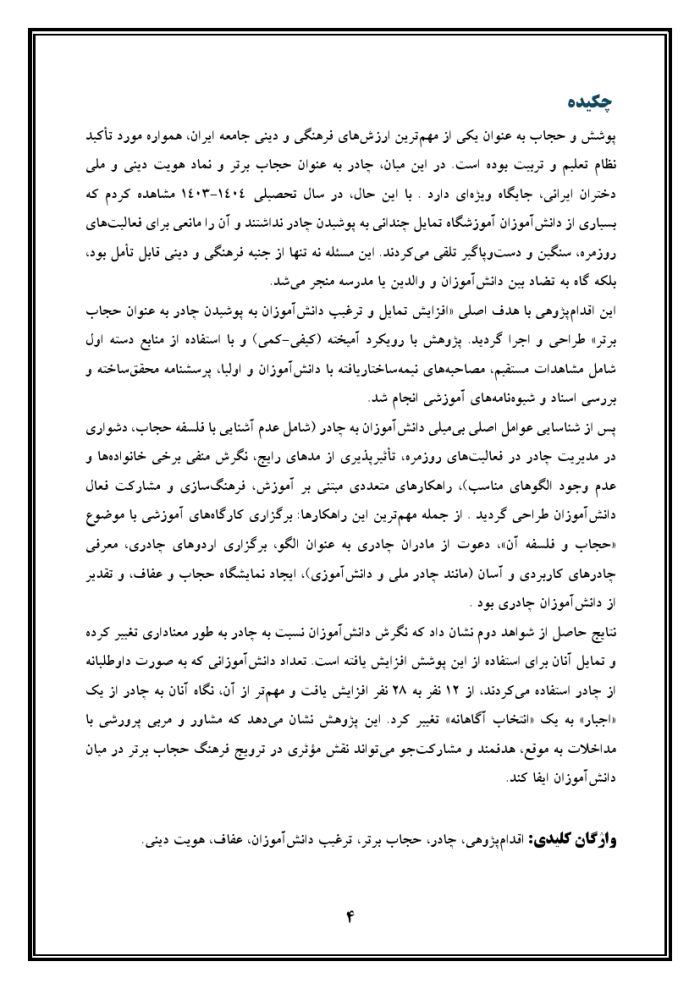 چکیده
پوشش و حجاب به عنوان یکی از مهم‌ترین ارزش‌های فرهنگی و دینی جامعه ایران، همواره مورد تأکید
نظام تعلیم و تربیت بوده است. در این میان، چادر به عنوان حجاب برتر و نماد هویت دینی و ملی
دختران ایرانی، جایگاه ویژه‌ای دارد . با این حال، در سال تحصیلی ۱۴۰۴-۱۴۰۳ مشاهده کردم که
بسیاری از دانش‌آموزان آموزشگاه تمایل چندانی به پوشیدن چادر نداشتند و آن را مانعی برای فعالیت‌های
روزمره، سنگین و دست‌وپاگیر تلقی می‌کردند. این مسئله نه تنها از جنبه فرهنگی و دینی قابل تأمل بود،
بلکه گاه به تضاد بین دانش‌آموزان و والدین یا مدرسه منجر می‌شد.
این اقدام‌پژوهی با هدف اصلی «افزایش تمایل و ترغیب دانش‌آموزان به پوشیدن چادر به عنوان حجاب
برتر» طراحی و اجرا گردید. پژوهش با رویکرد آمیخته (کیفی-کمی) و با استفاده از منابع دسته اول
شامل مشاهدات مستقیم، مصاحبه‌های نیمه‌ساختاریافته با دانش‌آموزان و اولیا، پرسشنامه محقق‌ساخته و
بررسی اسناد و شیوه‌نامه‌های آموزشی انجام شد.
پس از شناسایی عوامل اصلی بی‌میلی دانش‌آموزان به چادر (شامل عدم آشنایی با فلسفه حجاب، دشواری
در مدیریت چادر در فعالیت‌های روزمره، تأثیرپذیری از مدهای رایج، نگرش منفی برخی خانواده‌ها و
عدم وجود الگوهای مناسب)، راهکارهای متعددی مبتنی بر آموزش، فرهنگ‌سازی و مشارکت فعال
دانش‌آموزان طراحی گردید . از جمله مهم‌ترین این راهکارها: برگزاری کارگاه‌های آموزشی با موضوع
«حجاب و فلسفه آن»، دعوت از مادران چادری به عنوان الگو، برگزاری اردوهای چادری، معرفی
چادرهای کاربردی و آسان (مانند چادر ملی و دانش‌آموزی)، ایجاد نمایشگاه حجاب و عفاف، و تقدیر
از دانش‌آموزان چادری بود .
نتایج حاصل از شواهد دوم نشان داد که نگرش دانش‌آموزان نسبت به چادر به طور معناداری تغییر کرده
و تمایل آنان برای استفاده از این پوشش افزایش یافته است. تعداد دانش‌آموزانی که به صورت داوطلبانه
از چادر استفاده می‌کردند، از ۱۲ نفر به ۲۸ نفر افزایش یافت و مهم‌تر از آن، نگاه آنان به چادر از یک
«اجبار» به یک «انتخاب آگاهانه» تغییر کرد. این پژوهش نشان می‌دهد که مشاور و مربی پرورشی با
مداخلات به موقع، هدفمند و مشارکت‌جو می‌تواند نقش مؤثری در ترویج فرهنگ حجاب برتر در میان
دانش‌آموزان ایفا کند.
واژگان کلیدی: اقدام‌پژوهی، چادر، حجاب برتر، ترغیب دانش‌آموزان، عفاف، هویت دینی.
۴